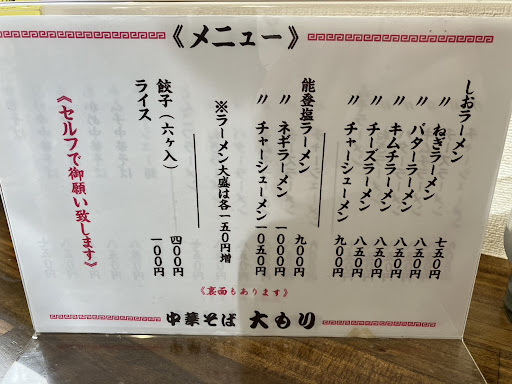 《メニュー》
しおラーメン 七五〇円
〃 ねぎラーメン 八五〇円
〃 バターラーメン 八五〇円
〃 キムチラーメン 八五〇円
〃 チーズラーメン 八五〇円
〃 チャーシューメン 九〇〇円
能登塩ラーメン 九〇〇円
〃 ネギラーメン 一〇〇〇円
〃 チャーシューメン 一〇五〇円
※ラーメン大盛は各一五〇円増
餃子(六ヶ入) 四〇〇円
ライス 一〇〇円
《セルフで御願い致します》
《裏面もあります》
中華そば 大もり